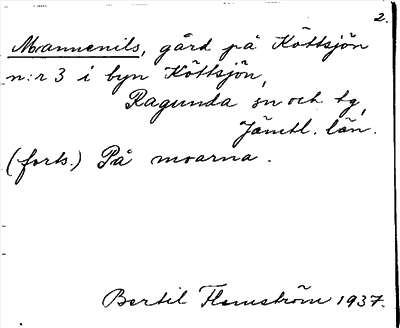 2.
Moannenils, gård på Köttsjön
n:r 3 i byn Köttsjön,
Ragunda sn och tg,
Jämtl. län.
(forts.) På moarna.
Bertil Flemström 1937.